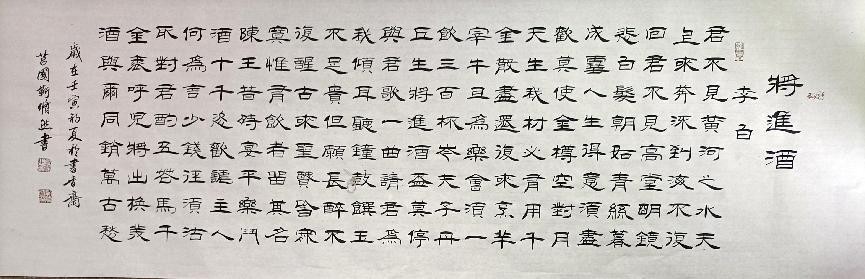 將進酒
李白
君不見黃河之水天
上來奔流到海不復
回君不見高堂明鏡
悲白髮朝如青絲暮
成雪人生得意須盡
歡莫使金樽空對月
天生我材必有用千
金散盡還復來烹羊
宰牛且爲樂會須一
飲三百杯岑夫子丹
丘生將進酒盃莫停
與君歌一曲請君爲
我傾耳聽鐘鼓饌玉
不足貴但願長醉不
復醒古來聖賢皆寂
寞惟有飲者留其名
陳王昔時宴平樂鬥
酒十千恣歡謔主人
何爲言少錢徑須沽
取對君酌五花馬千
金裘呼兒將出換美
酒與爾同銷萬古愁
歲在壬寅初夏於書香齋
莒國書